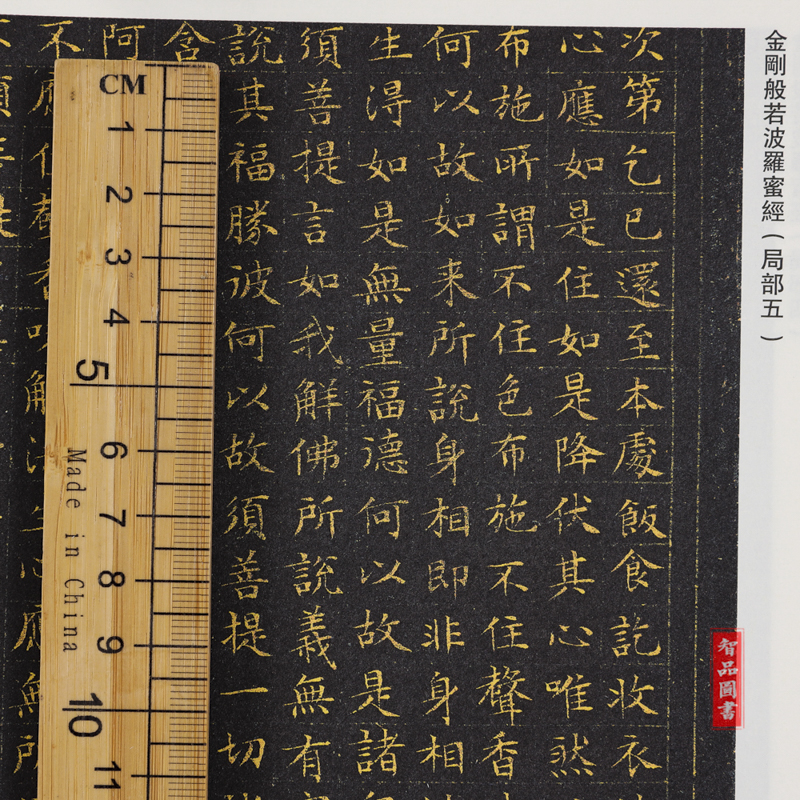 金剛般若波羅蜜經(局部五)
次第乞已還至本處飯食訖收衣
心應如是住如是降伏其心唯然
布施所謂不住色布施不住聲香
何以故如来所說身相即非身相
生淂如是無量福德何以故是諸
須善提言如我解佛所說義無有
說其福勝彼何以故須善提一切
含
阿
不
智品圖書
CM
1
2
3
4
5
6
7
8
9
10
11
Made in China